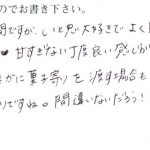 のでお書き下さい。
間ですが、しいと思い大好きでよく
❤ 甘すぎない丁度良い感じが
かに菓子寄りを渡す場合も
りですね。間違いないだろう!